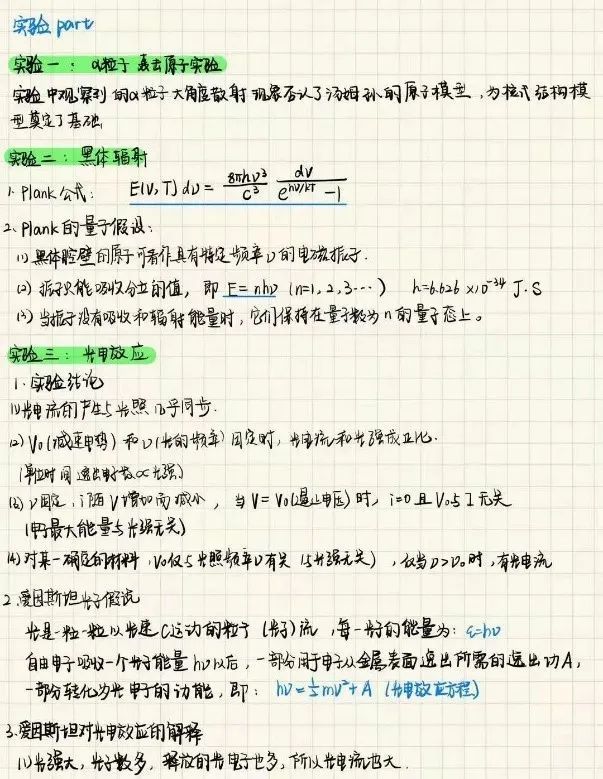 实验 part
实验一：α粒子轰击原子实验
实验中观察到的α粒子大角度散射现象否认了汤姆孙的原子模型，为核式结构模
型奠定了基础
实验二：黑体辐射
1. Plank 公式： E(ν,T)dν = 8πhν³/c³ dν/(e^(hν/kT) - 1)
2. Plank 的量子假设：
(1) 黑体腔壁的原子可看作具有特定频率ν的电磁振子.
(2) 振子只能吸收分立的值，即 E=nhν (n=1,2,3…) h=6.626×10⁻³⁴ J·S
(3) 当振子没有吸收和辐射能量时，它们保持在量子数为n的量子态上。
实验三：光电效应
1. 实验结论
(1) 光电流的产生与光照几乎同步.
(2) V₀(减速电势) 和ν(光的频率) 固定时，光电流和光强成正比.
(单位时间逸出电子数∝光强)
(3) ν固定，i随V增加而减小，当V=V₀(遏止电压)时，i=0且V₀与I无关
(电子最大能量与光强无关)
(4) 对某一确定的材料，V₀仅与光照频率ν有关(与光强无关)，仅当ν>ν₀时，有光电流
2. 爱因斯坦光子假说
光是一粒一粒以光速C运动的粒子(光子)流，每一光子的能量为：ε=hν
自由电子吸收一个光子能量hν以后，一部分用于电子从金属表面逸出所需的逸出功A，
一部分转化为光电子的动能，即：hν=½mv²+A (光电效应方程)
3. 爱因斯坦对光电效应的解释
(1) 光强大，光子数多，释放的光电子也多，所以光电流也大.